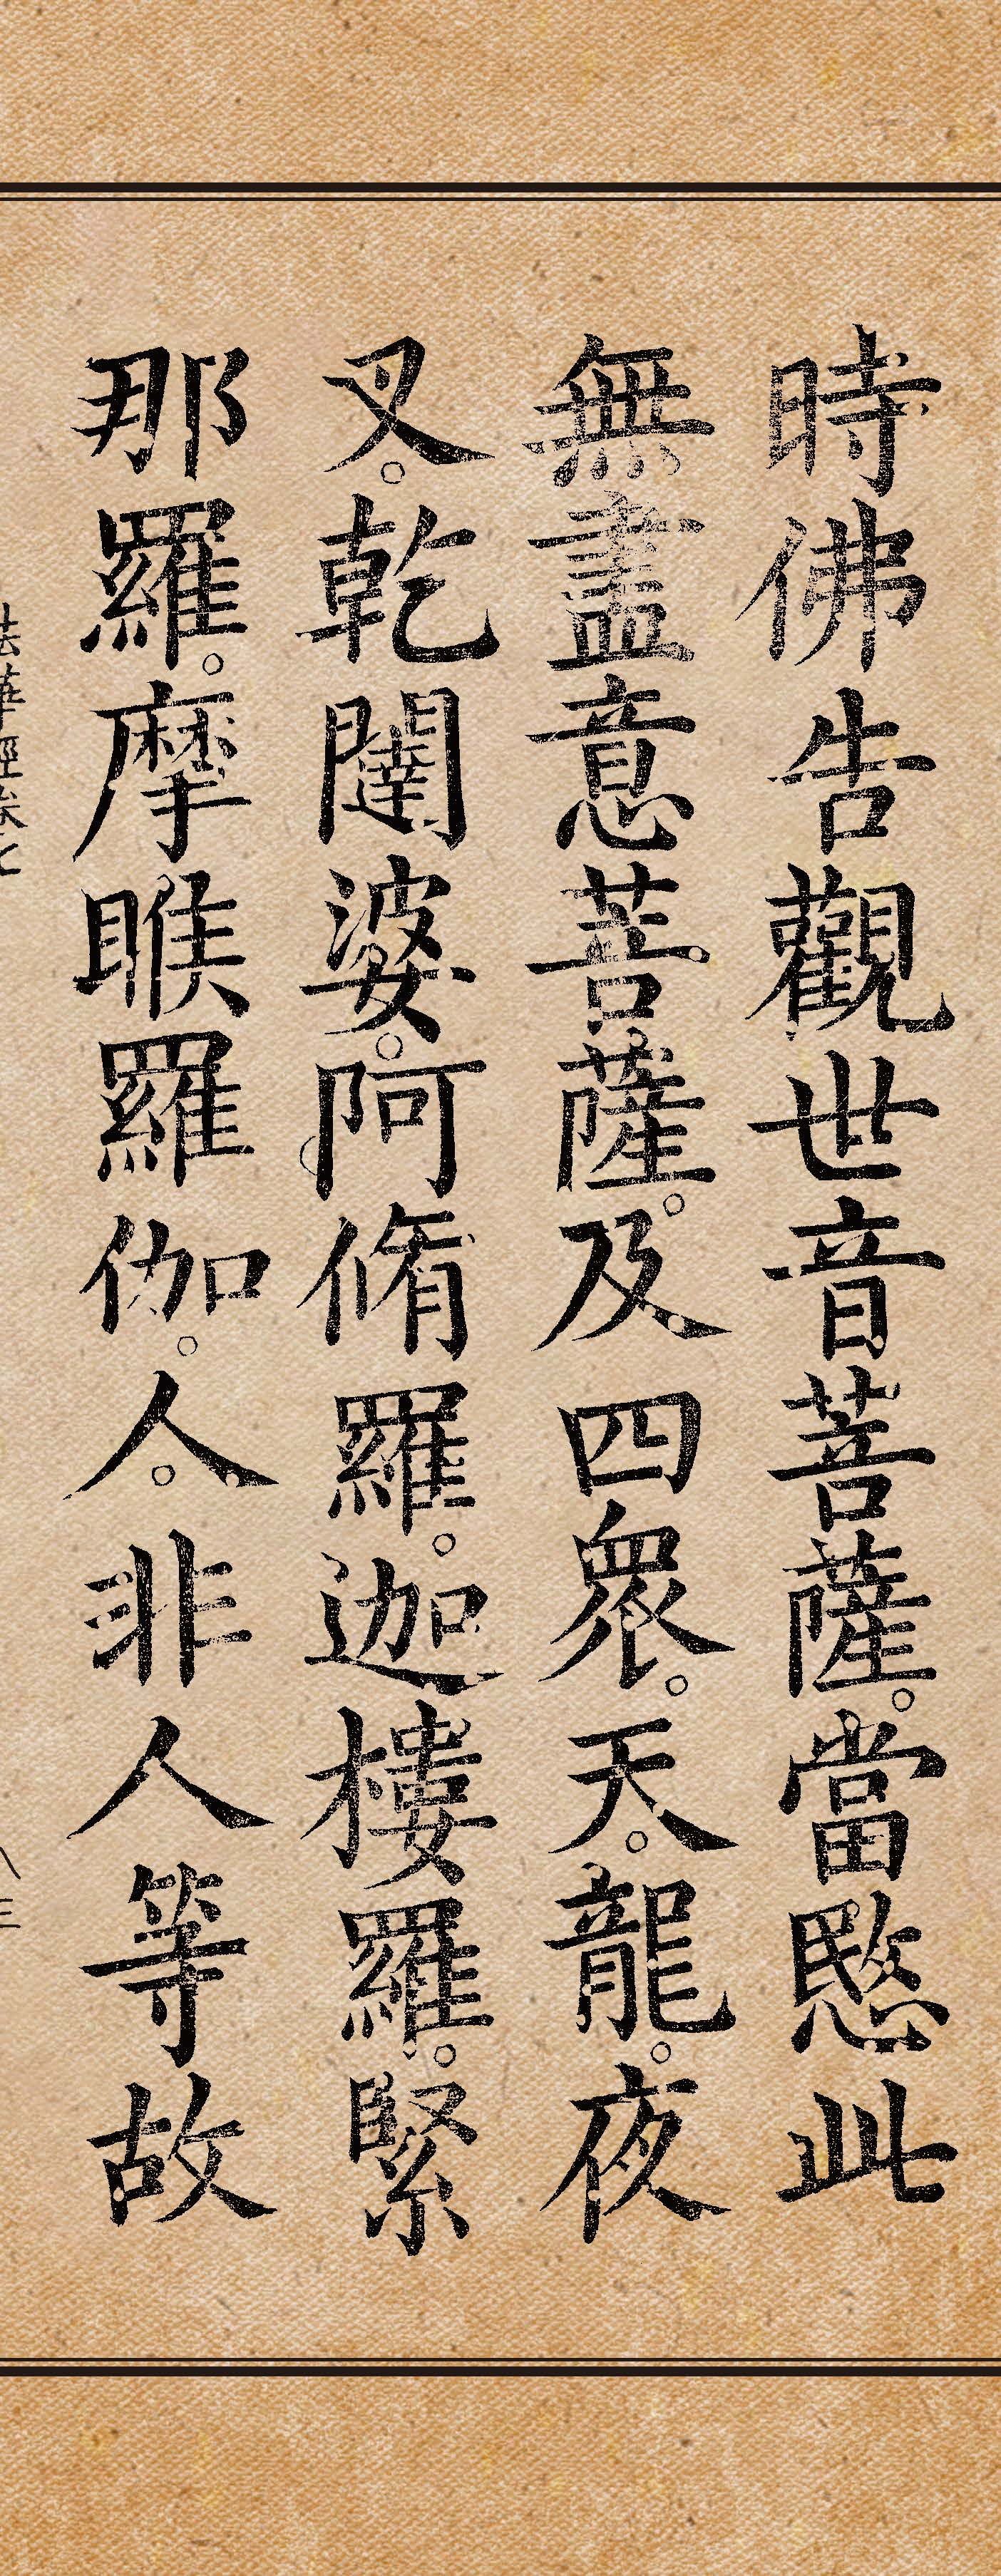 時佛告觀世音菩薩。當愍此
無盡意菩薩。及四眾。天。龍。夜
叉。乾闥婆。阿脩羅。迦樓羅。緊
那羅。摩睺羅伽。人。非人等故
法華經卷七
八三